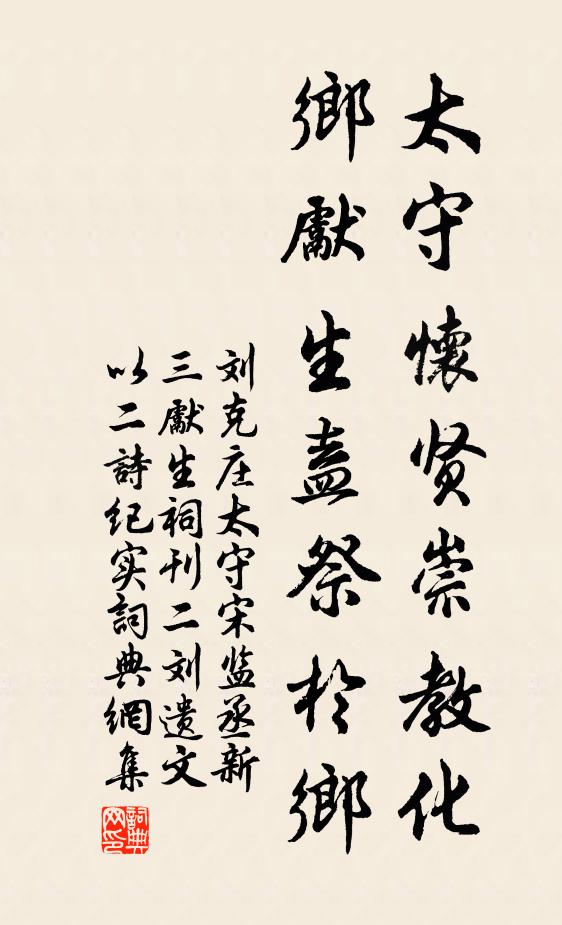 太守懷贤崇教化
鄉獻生盍祭於鄉
刘克庄太守宋监丞新
三獻生祠刊二刘遗文
以二詩纪实詞典網集
詞典网印